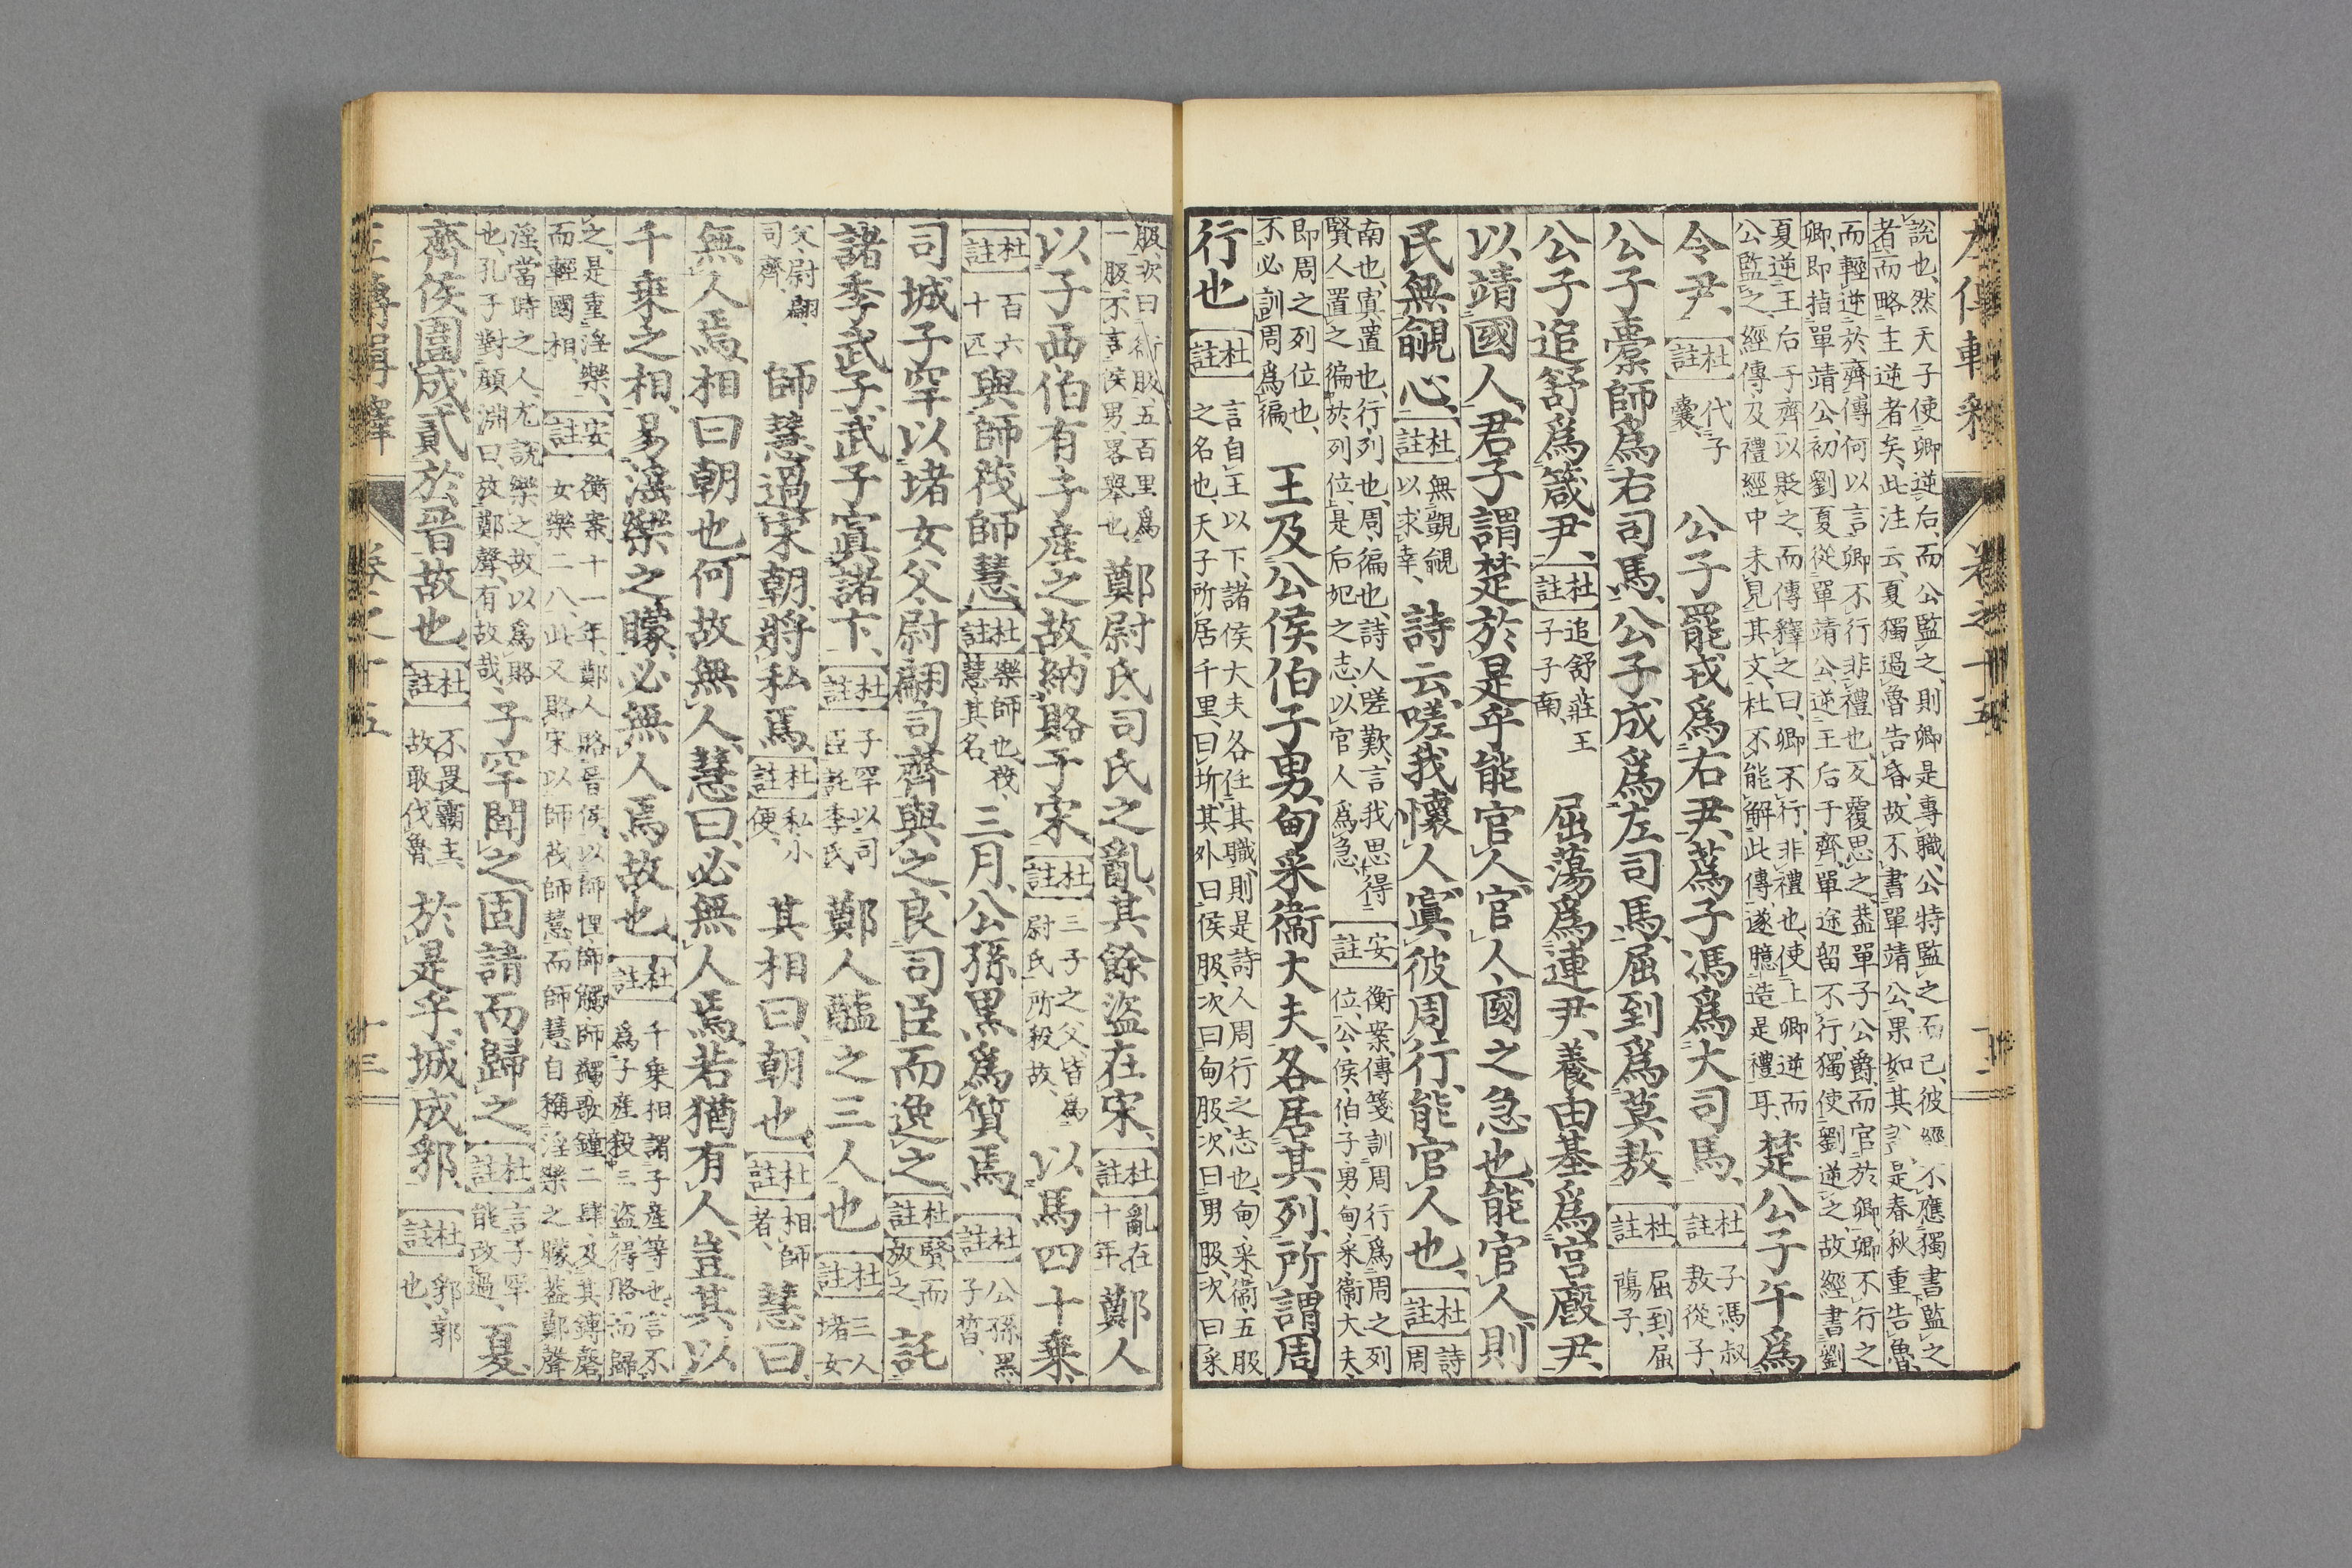 說也、然天子使卿逆后、而公監之、則卿是專職、公特監之而已、彼經不應獨書監之
者、而略主逆者矣、此注云、夏獨過魯告昏、故不書單靖公、果如其是春秋重告魯
而輕逆於齊、傳何以言卿不行非禮也、反覆思之、蓋單子公爵、而官於卿、卿不行之
卿、即指單靖公、初劉夏從單靖公、逆王后于齊、單途留不行、獨使劉逆之、故經書劉
夏逆王后于齊以貶之、而傳釋之曰、卿不行、非禮也、使上卿逆而
公監之、經傳及禮經中未見其文、杜不能解此傳、遂臆造是禮耳、
楚公子午爲
令尹、杜註代子囊、公子罷戎爲右尹、蒍子馮爲大司馬、杜註子馮、叔敖從子、
公子橐師爲右司馬、公子成爲左司馬、屈到爲莫敖、杜註屈到、屈蕩子、
公子追舒爲箴尹、杜註追舒莊王子子南、屈蕩爲連尹、養由基爲宮廄尹、
以靖國人、君子謂楚於是乎能官人、官人、國之急也、能官人、則
民無覦心、杜註無覬覦以求幸、詩云、嗟我懷人、寘彼周行、能官人也、杜註詩周
南也、寘、置也、行、列也、周、徧也、詩人嗟歎、言我思得
賢人、置之徧於列位、是后妃之志、以官人爲急、
安註衡案、傳箋訓周行爲周之列
位、公、侯、伯、子、男、甸、采、衞、大夫、
即周之列位也、
不必訓周爲徧
王及公侯伯子男、甸采衞大夫、各居其列、所謂周
行也、杜註言自王以下、諸侯大夫各任其職、則是詩人周行之志也、甸、采、衞、五服
之名也、天子所居千里、曰圻、其外曰侯服、次曰甸服、次曰男服、次曰采
服、次曰衞服、五百里爲
一服、不言侯男、畧舉也、
鄭尉氏司氏之亂、其餘盜在宋、杜註亂在十年、鄭人
以子西伯有子產之故、納賂于宋、杜註三子之父、皆爲尉氏所殺故、以馬四十乘、
杜註百六十匹、與師茷師慧、杜註樂師也、茷、慧其名、三月、公孫黑爲質焉、杜註公孫黑、子皙、
司城子罕以堵女父尉翩司齊與之、良司臣而逸之、杜註賢而放之、託
諸季武子、武子寘諸卞、杜註子罕以司臣託季氏、鄭人醢之三人也、杜註三人堵女
父、尉翩、司齊、師慧過宋朝、將私焉、杜註私、小便、其相曰、朝也、杜註相師者、慧曰、
無人焉、相曰、朝也、何故無人、慧曰、必無人焉、若猶有人、豈其以
千乘之相、易淫樂之矇、必無人焉故也、杜註千乘相、謂子產等也、言不爲子產殺三盜、得賂而歸
之、是重淫樂、
而輕國相、
安註衡案、十一年、鄭人賂晉侯、以師悝師觸師蠲、歌鐘二肆、及其鎛磬、
女樂二八、此又賂宋以師茷師慧、而師慧自稱淫樂之矇、蓋鄭聲
淫、當時之人、尤說樂之、故以爲賂
也、孔子對顏淵曰、放鄭聲、有故哉、
子罕聞之、固請而歸之、杜註言子罕能改過、夏、
齊侯圍成、貳於晉故也、杜註不畏霸主、故敢伐魯、於是乎城成郛、杜註郛、郭也、
卷之十五
十三